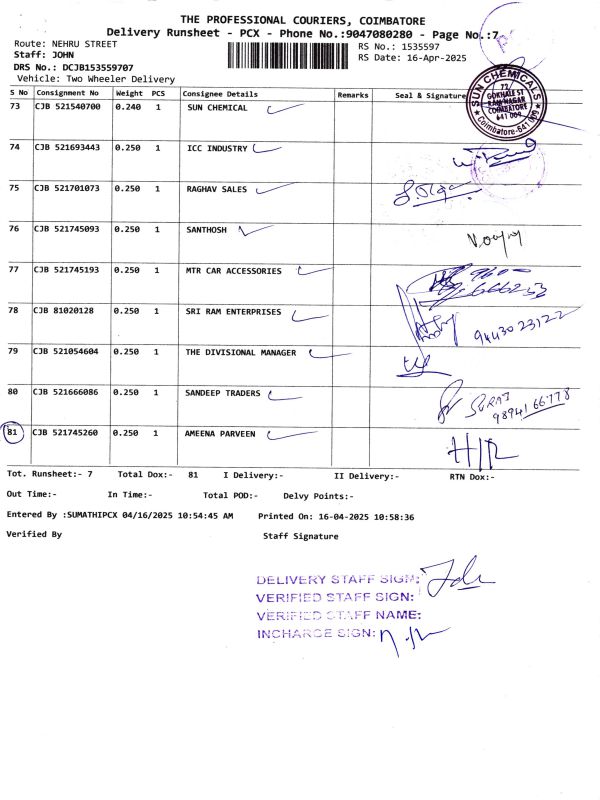 THE PROFESSIONAL COURIERS, COIMBATORE
Delivery Runsheet - PCX - Phone No.:9047080280 - Page No.:7
Route: NEHRU STREET
RS No.: 1535597
Staff: JOHN
RS Date: 16-Apr-2025
DRS No.: DCJB153559707
Vehicle: Two Wheeler Delivery
S No Consignment No Weight PCS Consignee Details Remarks Seal & Signature
SUN CHEMICALS
72
GOKHALE ST
RAM NAGAR
COIMBATORE
641 009
Coimbatore-641 009
73 CJB 521540700 0.240 1 SUN CHEMICAL
74 CJB 521693443 0.250 1 ICC INDUSTRY
75 CJB 521701073 0.250 1 RAGHAV SALES
76 CJB 521745093 0.250 1 SANTHOSH
77 CJB 521745193 0.250 1 MTR CAR ACCESSORIES
78 CJB 81020128 0.250 1 SRI RAM ENTERPRISES 9443023122
79 CJB 521054604 0.250 1 THE DIVISIONAL MANAGER
80 CJB 521666086 0.250 1 SANDEEP TRADERS SURAJ
81 CJB 521745260 0.250 1 AMEENA PARVEEN
Tot. Runsheet:- 7 Total Dox:- 81 I Delivery:- II Delivery:- RTN Dox:-
Out Time:- In Time:- Total POD:- Delvy Points:-
Entered By :SUMATHIPCX 04/16/2025 10:54:45 AM Printed On: 16-04-2025 10:58:36
Verified By Staff Signature
DELIVERY STAFF SIGN:
VERIFIED STAFF SIGN:
VERIFIED STAFF NAME:
INCHARGE SIGN: